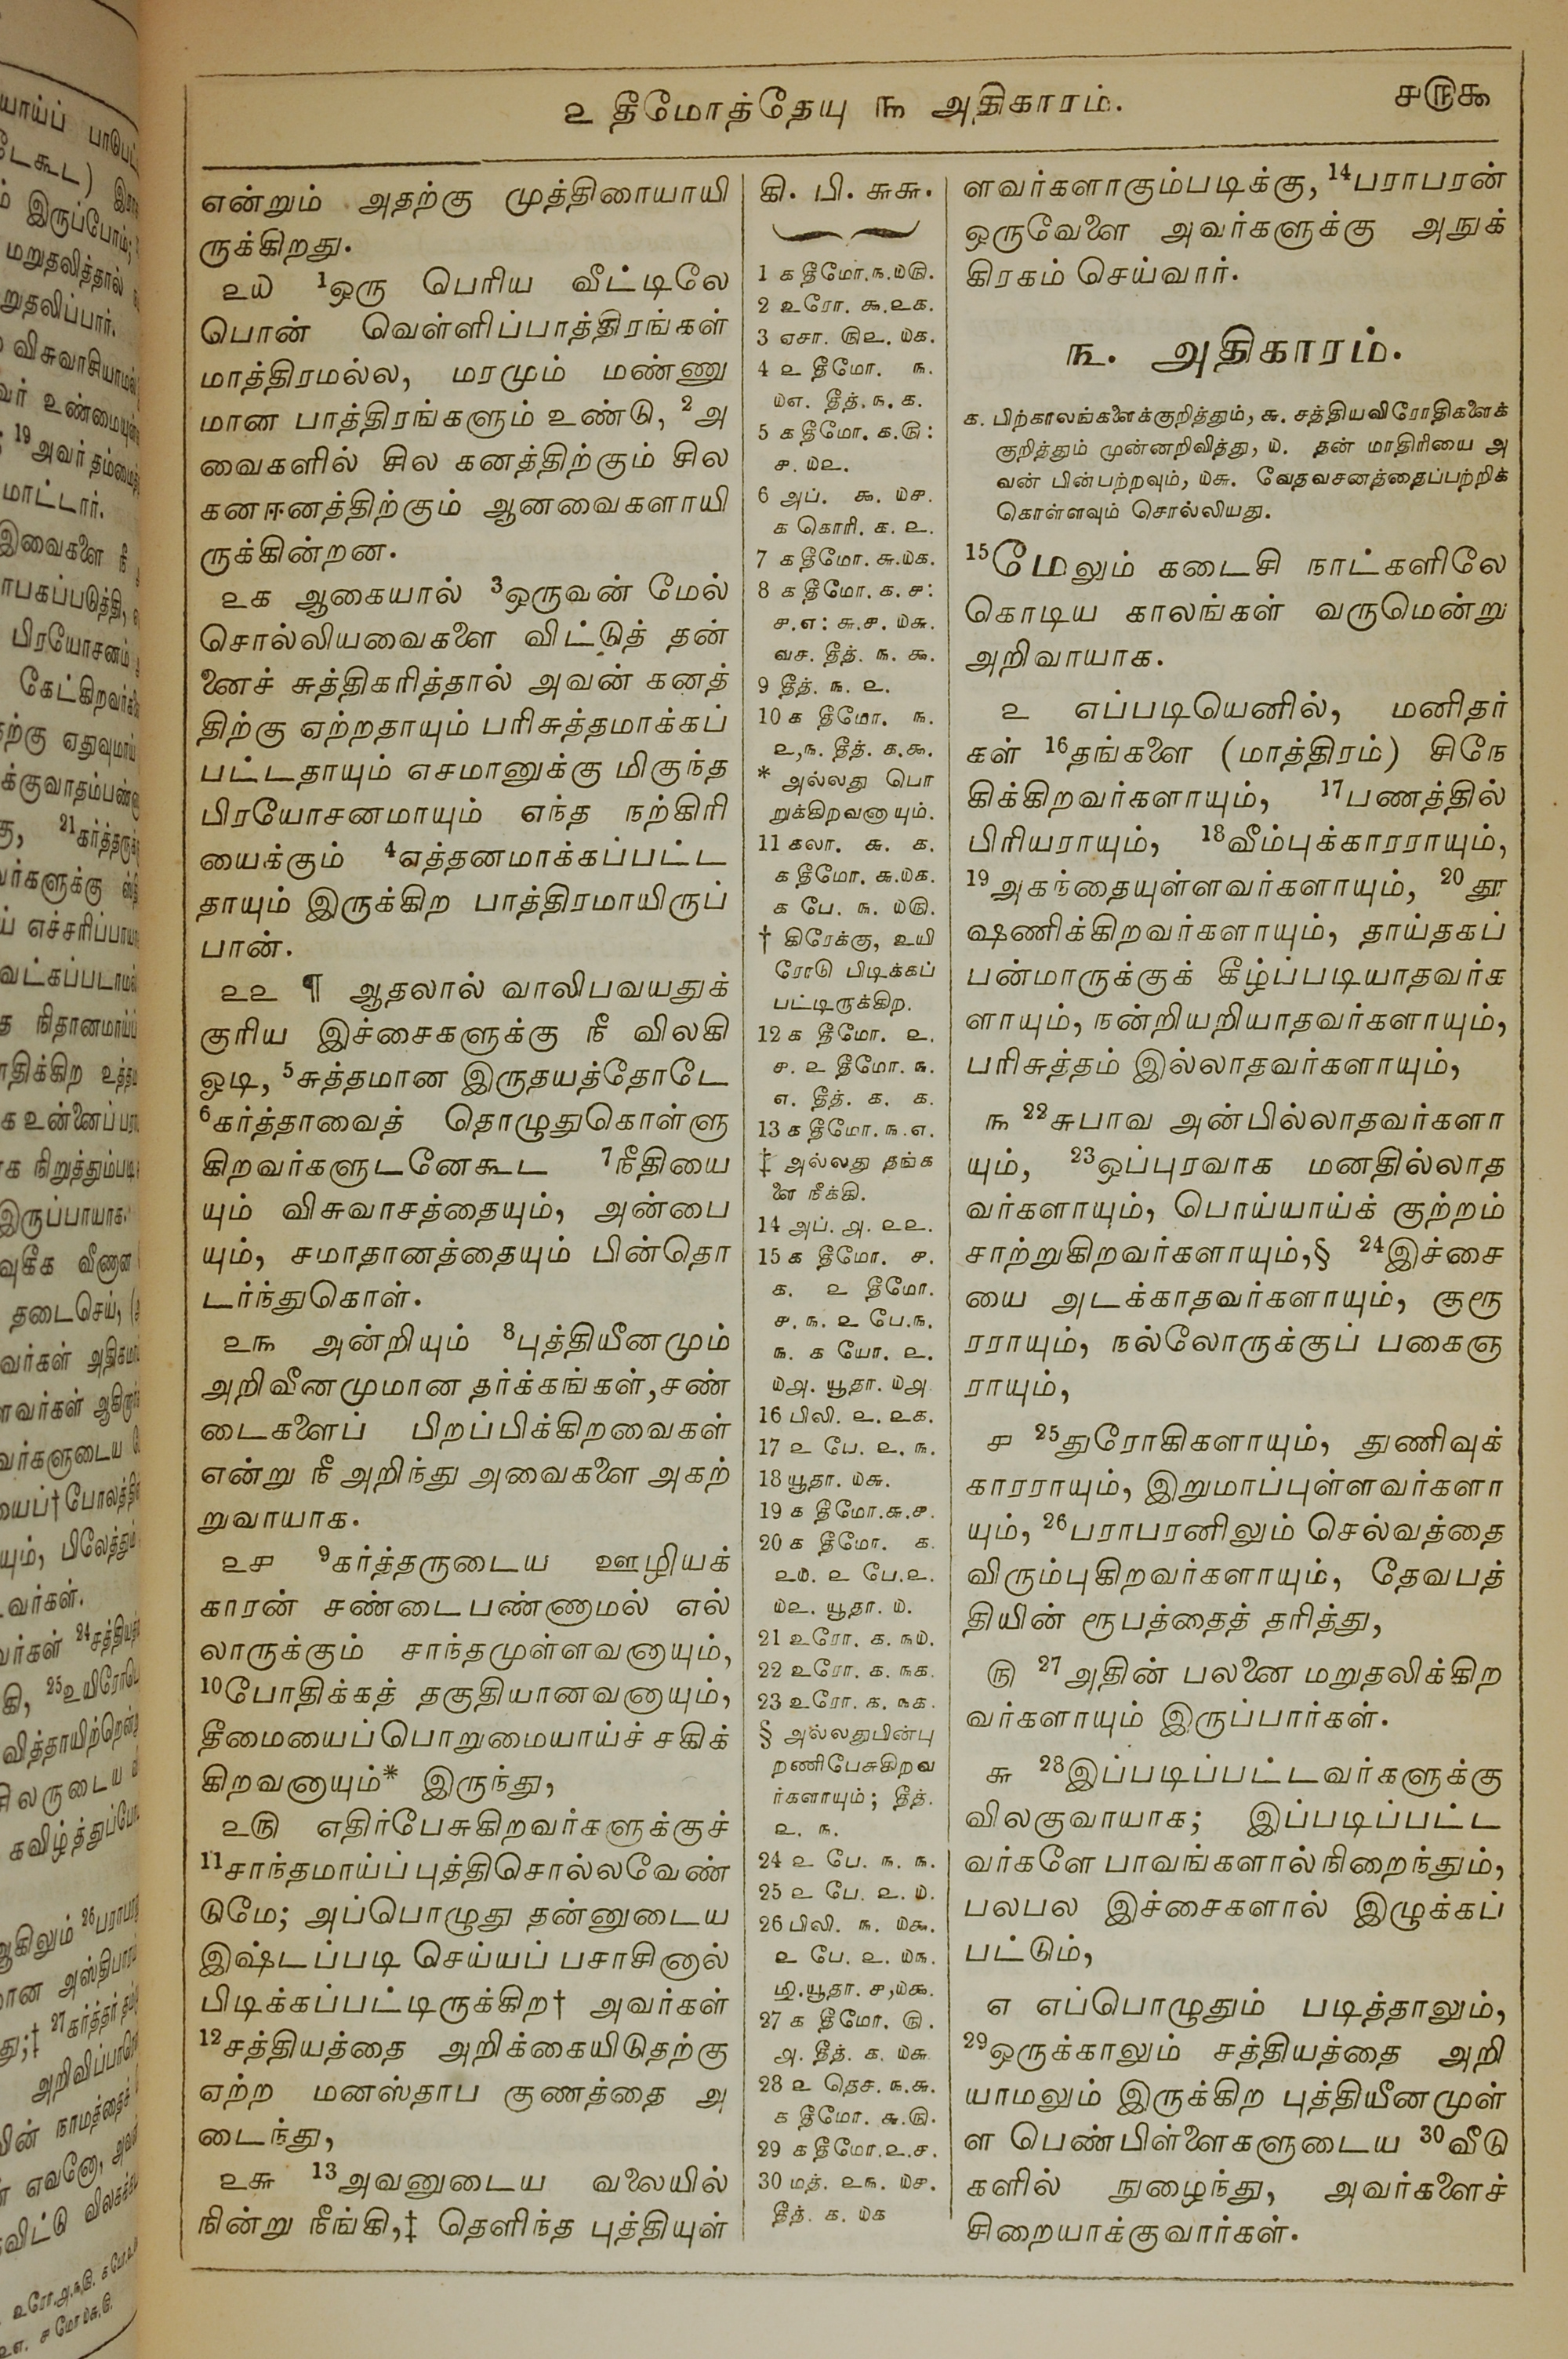 ௨ தீமோத்தேயு ௩ அதிகாரம்.
௪௫௯
என்றும் அதற்கு முத்திரையாயி
ருக்கிறது.
௨௰ 1ஒரு பெரிய வீட்டிலே
பொன் வெள்ளிப்பாத்திரங்கள்
மாத்திரமல்ல, மரமும் மண்ணு
மான பாத்திரங்களும் உண்டு, 2அ
வைகளில் சில கனத்திற்கும் சில
கனஈனத்திற்கும் ஆனவைகளாயி
ருக்கின்றன.
௨௧ ஆகையால் 3ஒருவன் மேல்
சொல்லியவைகளை விட்டுத் தன்
னைச் சுத்திகரித்தால் அவன் கனத்
திற்கு ஏற்றதாயும் பரிசுத்தமாக்கப்
பட்டதாயும் எசமானுக்கு மிகுந்த
பிரயோசனமாயும் எந்த நற்கிரி
யைக்கும் 4எத்தனமாக்கப்பட்ட
தாயும் இருக்கிற பாத்திரமாயிருப்
பான்.
௨௨ ¶ ஆதலால் வாலிபவயதுக்
குரிய இச்சைகளுக்கு நீ விலகி
ஓடி, 5சுத்தமான இருதயத்தோடே
6கர்த்தாவைத் தொழுதுகொள்ளு
கிறவர்களுடனேகூட 7நீதியை
யும் விசுவாசத்தையும், அன்பை
யும், சமாதானத்தையும் பின்தொ
டர்ந்துகொள்.
௨௩ அன்றியும் 8புத்தியீனமும்
அறிவீனமுமான தர்க்கங்கள், சண்
டைகளைப் பிறப்பிக்கிறவைகள்
என்று நீ அறிந்து அவைகளை அகற்
றுவாயாக.
௨௪ 9கர்த்தருடைய ஊழியக்
காரன் சண்டைபண்ணாமல் எல்
லாருக்கும் சாந்தமுள்ளவனாயும்,
10போதிக்கத் தகுதியானவனாயும்,
தீமையைப்பொறுமையாய்ச் சகிக்
கிறவனாயும்* இருந்து,
௨௫ எதிர்பேசுகிறவர்களுக்குச்
11சாந்தமாய்ப் புத்திசொல்லவேண்
டுமே; அப்பொழுது தன்னுடைய
இஷ்டப்படி செய்யப் பசாசினால்
பிடிக்கப்பட்டிருக்கிற† அவர்கள்
12சத்தியத்தை அறிக்கையிடுதற்கு
ஏற்ற மனஸ்தாப குணத்தை அ
டைந்து,
௨௬ 13அவனுடைய வலையில்
நின்று நீங்கி,‡ தெளிந்த புத்தியுள்
கி. பி. ௬௬.
1 ௧ தீமோ. ௩. ௰௫.
2 உரோ. ௯. ௨௧.
3 ஏசா. ௫௨. ௰௧.
4 ௨ தீமோ. ௩.
௰௭. தீத். ௩. ௧.
5 ௧ தீமோ. ௧. ௫:
௪. ௰௨.
6 அப். ௯. ௰௪.
௧ கொரி. ௧. ௨.
7 ௧ தீமோ. ௬. ௰௧.
8 ௧ தீமோ. ௧. ௪:
௪. ௭: ௬. ௪. ௰௬.
வச. தீத். ௩. ௯.
9 தீத். ௩. ௨.
10 ௧ தீமோ. ௩.
௨, ௩. தீத். ௧. ௯.
* அல்லது பொ
றுக்கிறவனாயும்.
11 கலா. ௬. ௧.
௧ தீமோ. ௬. ௰௧.
௧ பே. ௩. ௰௫.
† கிரேக்கு, உயி
ரோடு பிடிக்கப்
பட்டிருக்கிற.
12 ௧ தீமோ. ௨.
௪. ௨ தீமோ. ௩.
௭. தீத். ௧. ௧.
13 ௧ தீமோ. ௩. ௭.
‡ அல்லது தங்க
ளை நீக்கி.
14 அப். ௮. ௨௨.
15 ௧ தீமோ. ௪.
௧. ௨ தீமோ.
௪. ௩. ௨ பே. ௩.
௩. ௧ யோ. ௨.
௰௮. யூதா. ௰௮
16 பிலி. ௨. ௨௧.
17 ௨ பே. ௨. ௩.
18 யூதா. ௰௬.
19 ௧ தீமோ. ௬. ௪.
20 ௧ தீமோ. ௧.
௨௰. ௨ பே. ௨.
௰௨. யூதா. ௰.
21 உரோ. ௧. ௩௰.
22 உரோ. ௧. ௩௧.
23 உரோ. ௧. ௩௧.
§ அல்லதுபின்பு
றணிபேசுகிறவ
ர்களாயும்; தீத்.
௨. ௩.
24 ௨ பே. ௩. ௩.
25 ௨ பே. ௨. ௰.
26 பிலி. ௩. ௰௯.
௨ பே. ௨. ௰௩.
யூதா. ௪, ௰௯.
27 ௧ தீமோ. ௫.
௮. தீத். ௧. ௰௬
28 ௨ தெச. ௩. ௬.
௧ தீமோ. ௬. ௫.
29 ௧ தீமோ. ௨. ௪.
30 மத். ௨௩. ௰௪.
தீத். ௧. ௰௧
ளவர்களாகும்படிக்கு, 14பராபரன்
ஒருவேளை அவர்களுக்கு அநுக்
கிரகம் செய்வார்.
௩. அதிகாரம்.
௧. பிற்காலங்களைக்குறித்தும், ௬. சத்தியவிரோதிகளைக்
குறித்தும் முன்னறிவித்து, ௰. தன் மாதிரியை அ
வன் பின்பற்றவும், ௰௬. வேதவசனத்தைப்பற்றிக்
கொள்ளவும் சொல்லியது.
15மேலும் கடைசி நாட்களிலே
கொடிய காலங்கள் வருமென்று
அறிவாயாக.
௨ எப்படியெனில், மனிதர்
கள் 16தங்களை (மாத்திரம்) சிநே
கிக்கிறவர்களாயும், 17பணத்தில்
பிரியராயும், 18வீம்புக்காரராயும்,
19அகந்தையுள்ளவர்களாயும், 20தூ
ஷணிக்கிறவர்களாயும், தாய்தகப்
பன்மாருக்குக் கீழ்ப்படியாதவர்க
ளாயும், நன்றியறியாதவர்களாயும்,
பரிசுத்தம் இல்லாதவர்களாயும்,
௩ 22சுபாவ அன்பில்லாதவர்களா
யும், 23ஒப்புரவாக மனதில்லாத
வர்களாயும், பொய்யாய்க் குற்றம்
சாற்றுகிறவர்களாயும்,§ 24இச்சை
யை அடக்காதவர்களாயும், குரூ
ரராயும், நல்லோருக்குப் பகைஞ
ராயும்,
௪ 25துரோகிகளாயும், துணிவுக்
காரராயும், இறுமாப்புள்ளவர்களா
யும், 26பராபரனிலும் செல்வத்தை
விரும்புகிறவர்களாயும், தேவபத்
தியின் ரூபத்தைத் தரித்து,
௫ 27அதின் பலனை மறுதலிக்கிற
வர்களாயும் இருப்பார்கள்.
௬ 28இப்படிப்பட்டவர்களுக்கு
விலகுவாயாக; இப்படிப்பட்ட
வர்களே பாவங்களால்நிறைந்தும்,
பலபல இச்சைகளால் இழுக்கப்
பட்டும்,
௭ எப்பொழுதும் படித்தாலும்,
29ஒருக்காலும் சத்தியத்தை அறி
யாமலும் இருக்கிற புத்தியீனமுள்
ள பெண்பிள்ளைகளுடைய 30வீடு
களில் நுழைந்து, அவர்களைச்
சிறையாக்குவார்கள்.